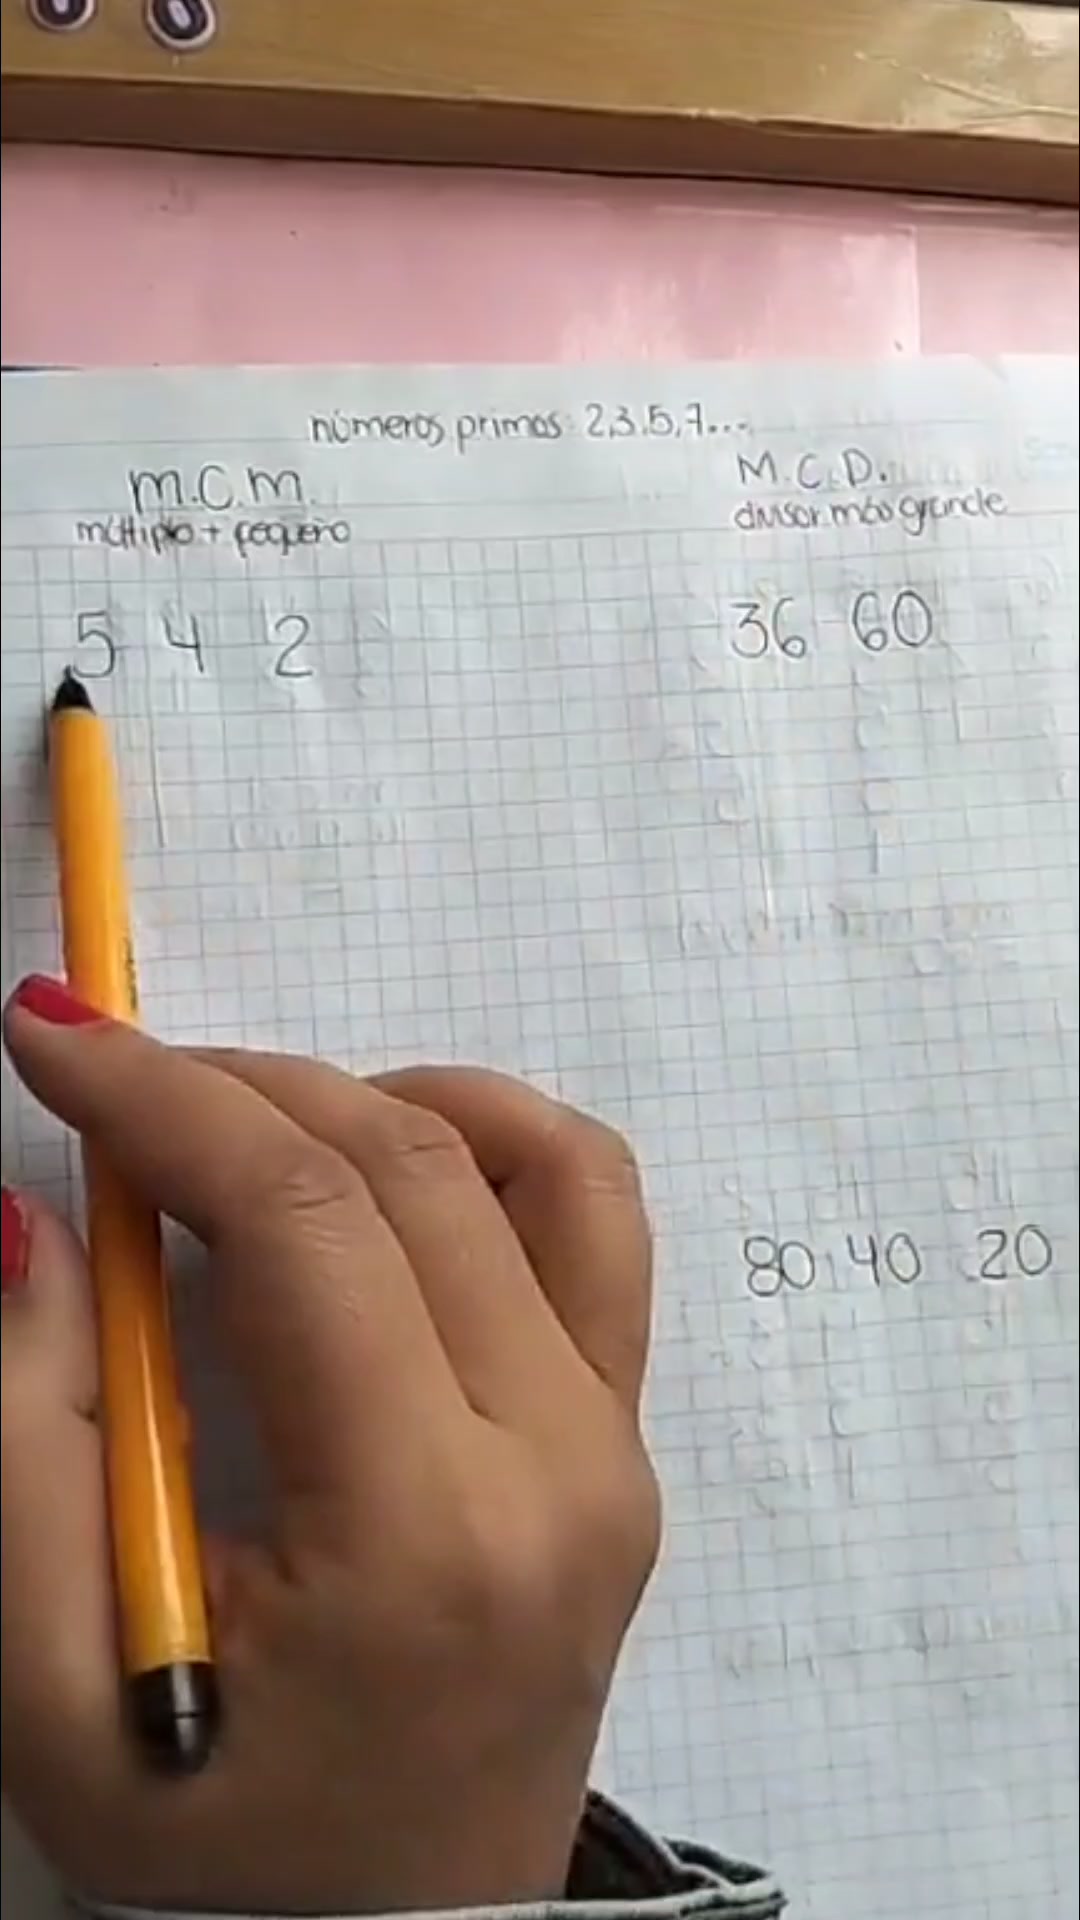 números primos: 2,3,5,7...
m.c.m.
múltiplo + pequeño
M.C.D.
divisor más grande
5 4 2
36 60
80 40 20